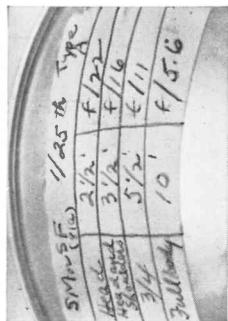 1/25 th Type A
Head 2 1/2' f/22
Head and Shoulders 3 1/2' f/16
3/4 5 1/2' f/11
Full body 10' f/5.6